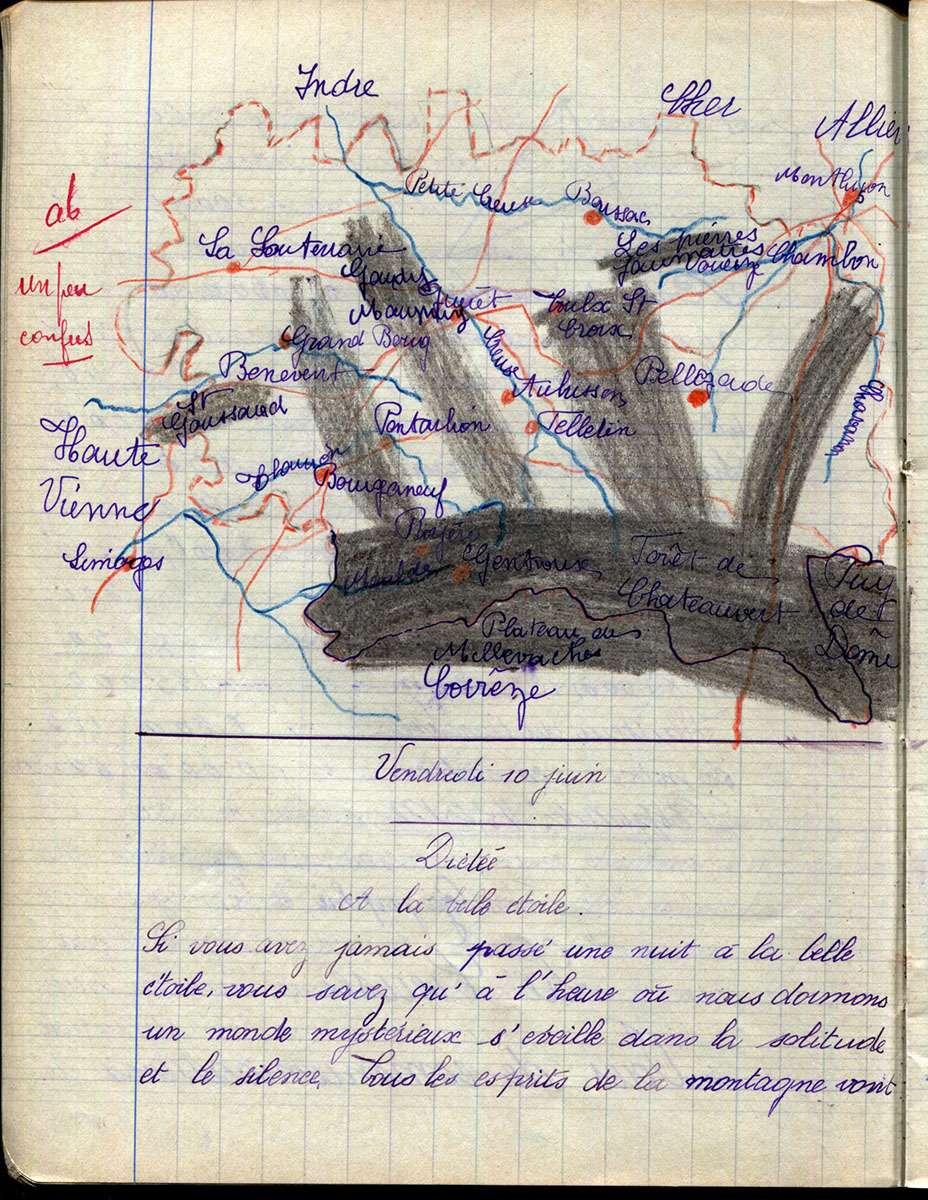 Indre
Cher
Allier
Montluçon
ab
un peu
confus
Petite Creuse
Boussac
La Souterraine
Les pierres
Jaumatres
Voueize
Chambon
Gaudy
Maupuy
Guéret
Toulx St
Croix
Grand Bourg
Benevent
Creuse
Aubusson
Bellegade
St
Goussaud
Pontarion
Felletin
Haute
Vienne
Bourganeuf
Limoges
Royère
Gentioux
Forêt de
Chateauvert
Puy
de
Dôme
Plateau du
Millevaches
Corrêze
Vendredi 10 juin
Dictée
A la belle étoile.
Si vous avez jamais passé une nuit à la belle
étoile, vous savez qu'à l'heure où nous dormons
un monde mystérieux s'éveille dans la solitude
et le silence. Tous les esprits de la montagne vont